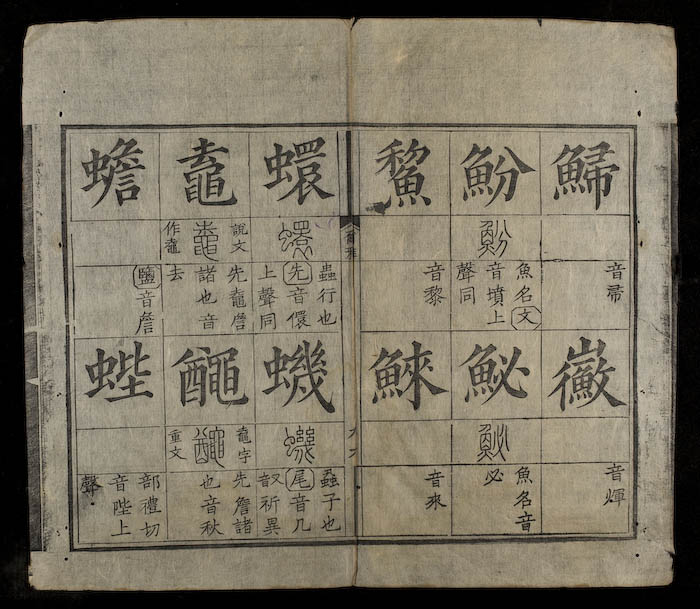 鯞
音帚
鰴
音煇
魵
魵
魚名文
音墳上
聲同
鮅
鮅
魚名音
必
鯬
音黎
鯠
音來
爾雅
蠉
蠉
蟲行也
先音儇
上聲同
蟣
蟣
蝨子也
尾音几
又音祈異
鼁
說文
作鼀
先鼀詹
諸也音
去
𪓰
鼀字
重文
先詹諸
也音秋
蟾
鹽音詹
蜌
部禮切
音陛上
聲